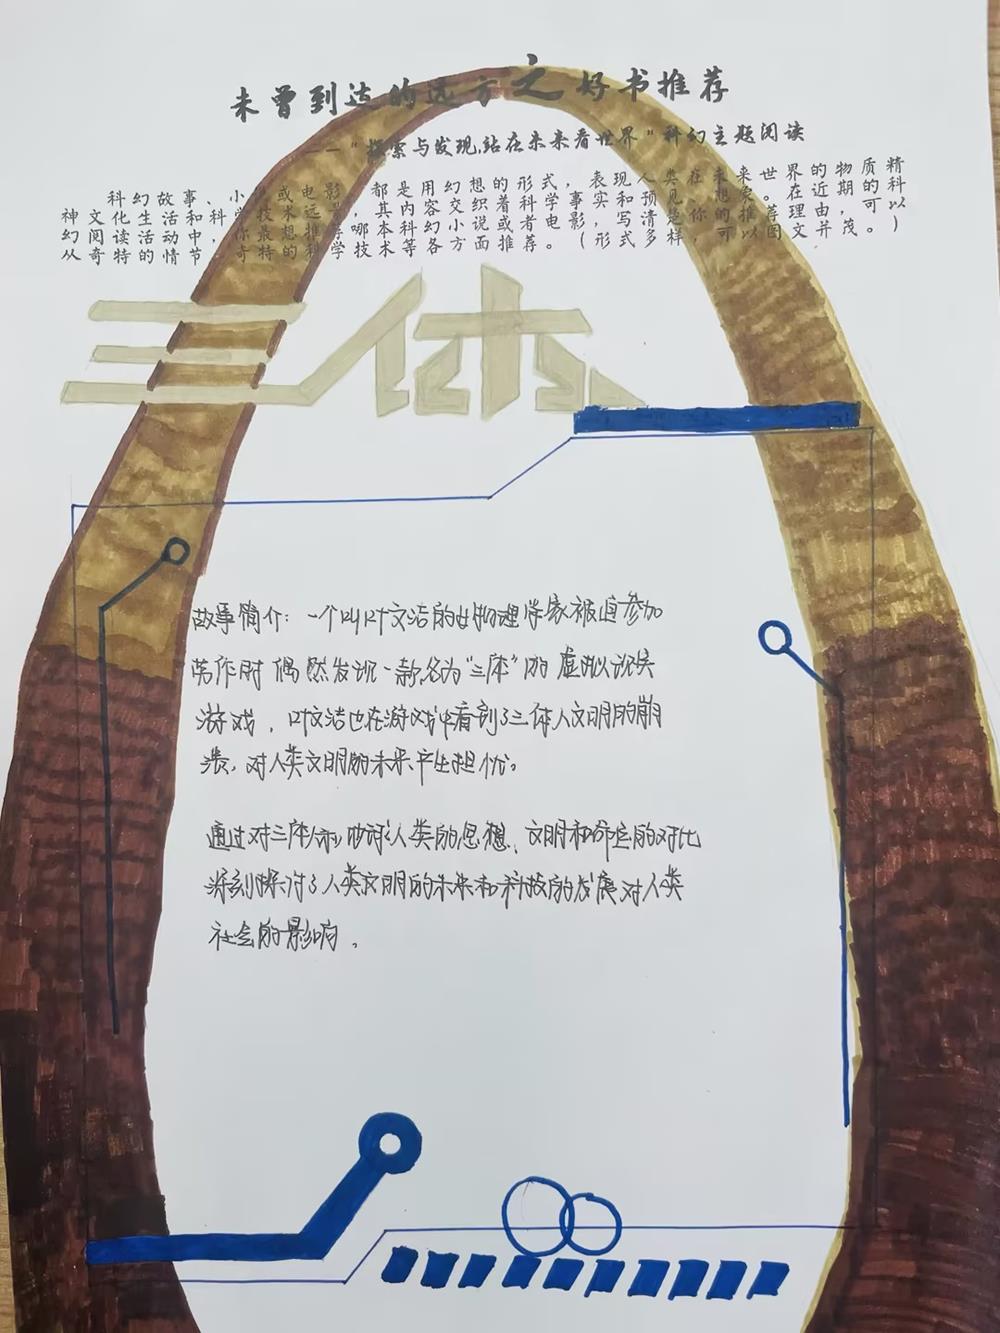 未曾到达的远方之好书推荐
——“探索与发现,站在未来看世界”科幻主题阅读
科幻故事、小说或电影，都是用幻想的形式，表现人类在未来世界的物质精
神文化生活和科学技术远景，其内容交织着科学事实和预见、想象。在近期的科
幻阅读活动中，你最想推荐哪本科幻小说或者电影，写清楚你的推荐理由，可以
从奇特的情节、奇特的科学技术等各方面推荐。（形式多样，可以图文并茂。）
三体
故事简介：一个叫叶文洁的女物理学家被迫参加
劳作时偶然发现一款名为“三体”的虚拟说
游戏，叶文洁也在游戏中看到了三体人文明的崩
溃，对人类文明的未来产生担忧。
通过对三体人和地球人类的思想、文明和命运的对比
深刻探讨了人类文明的未来和科技的发展对人类
社会的影响。